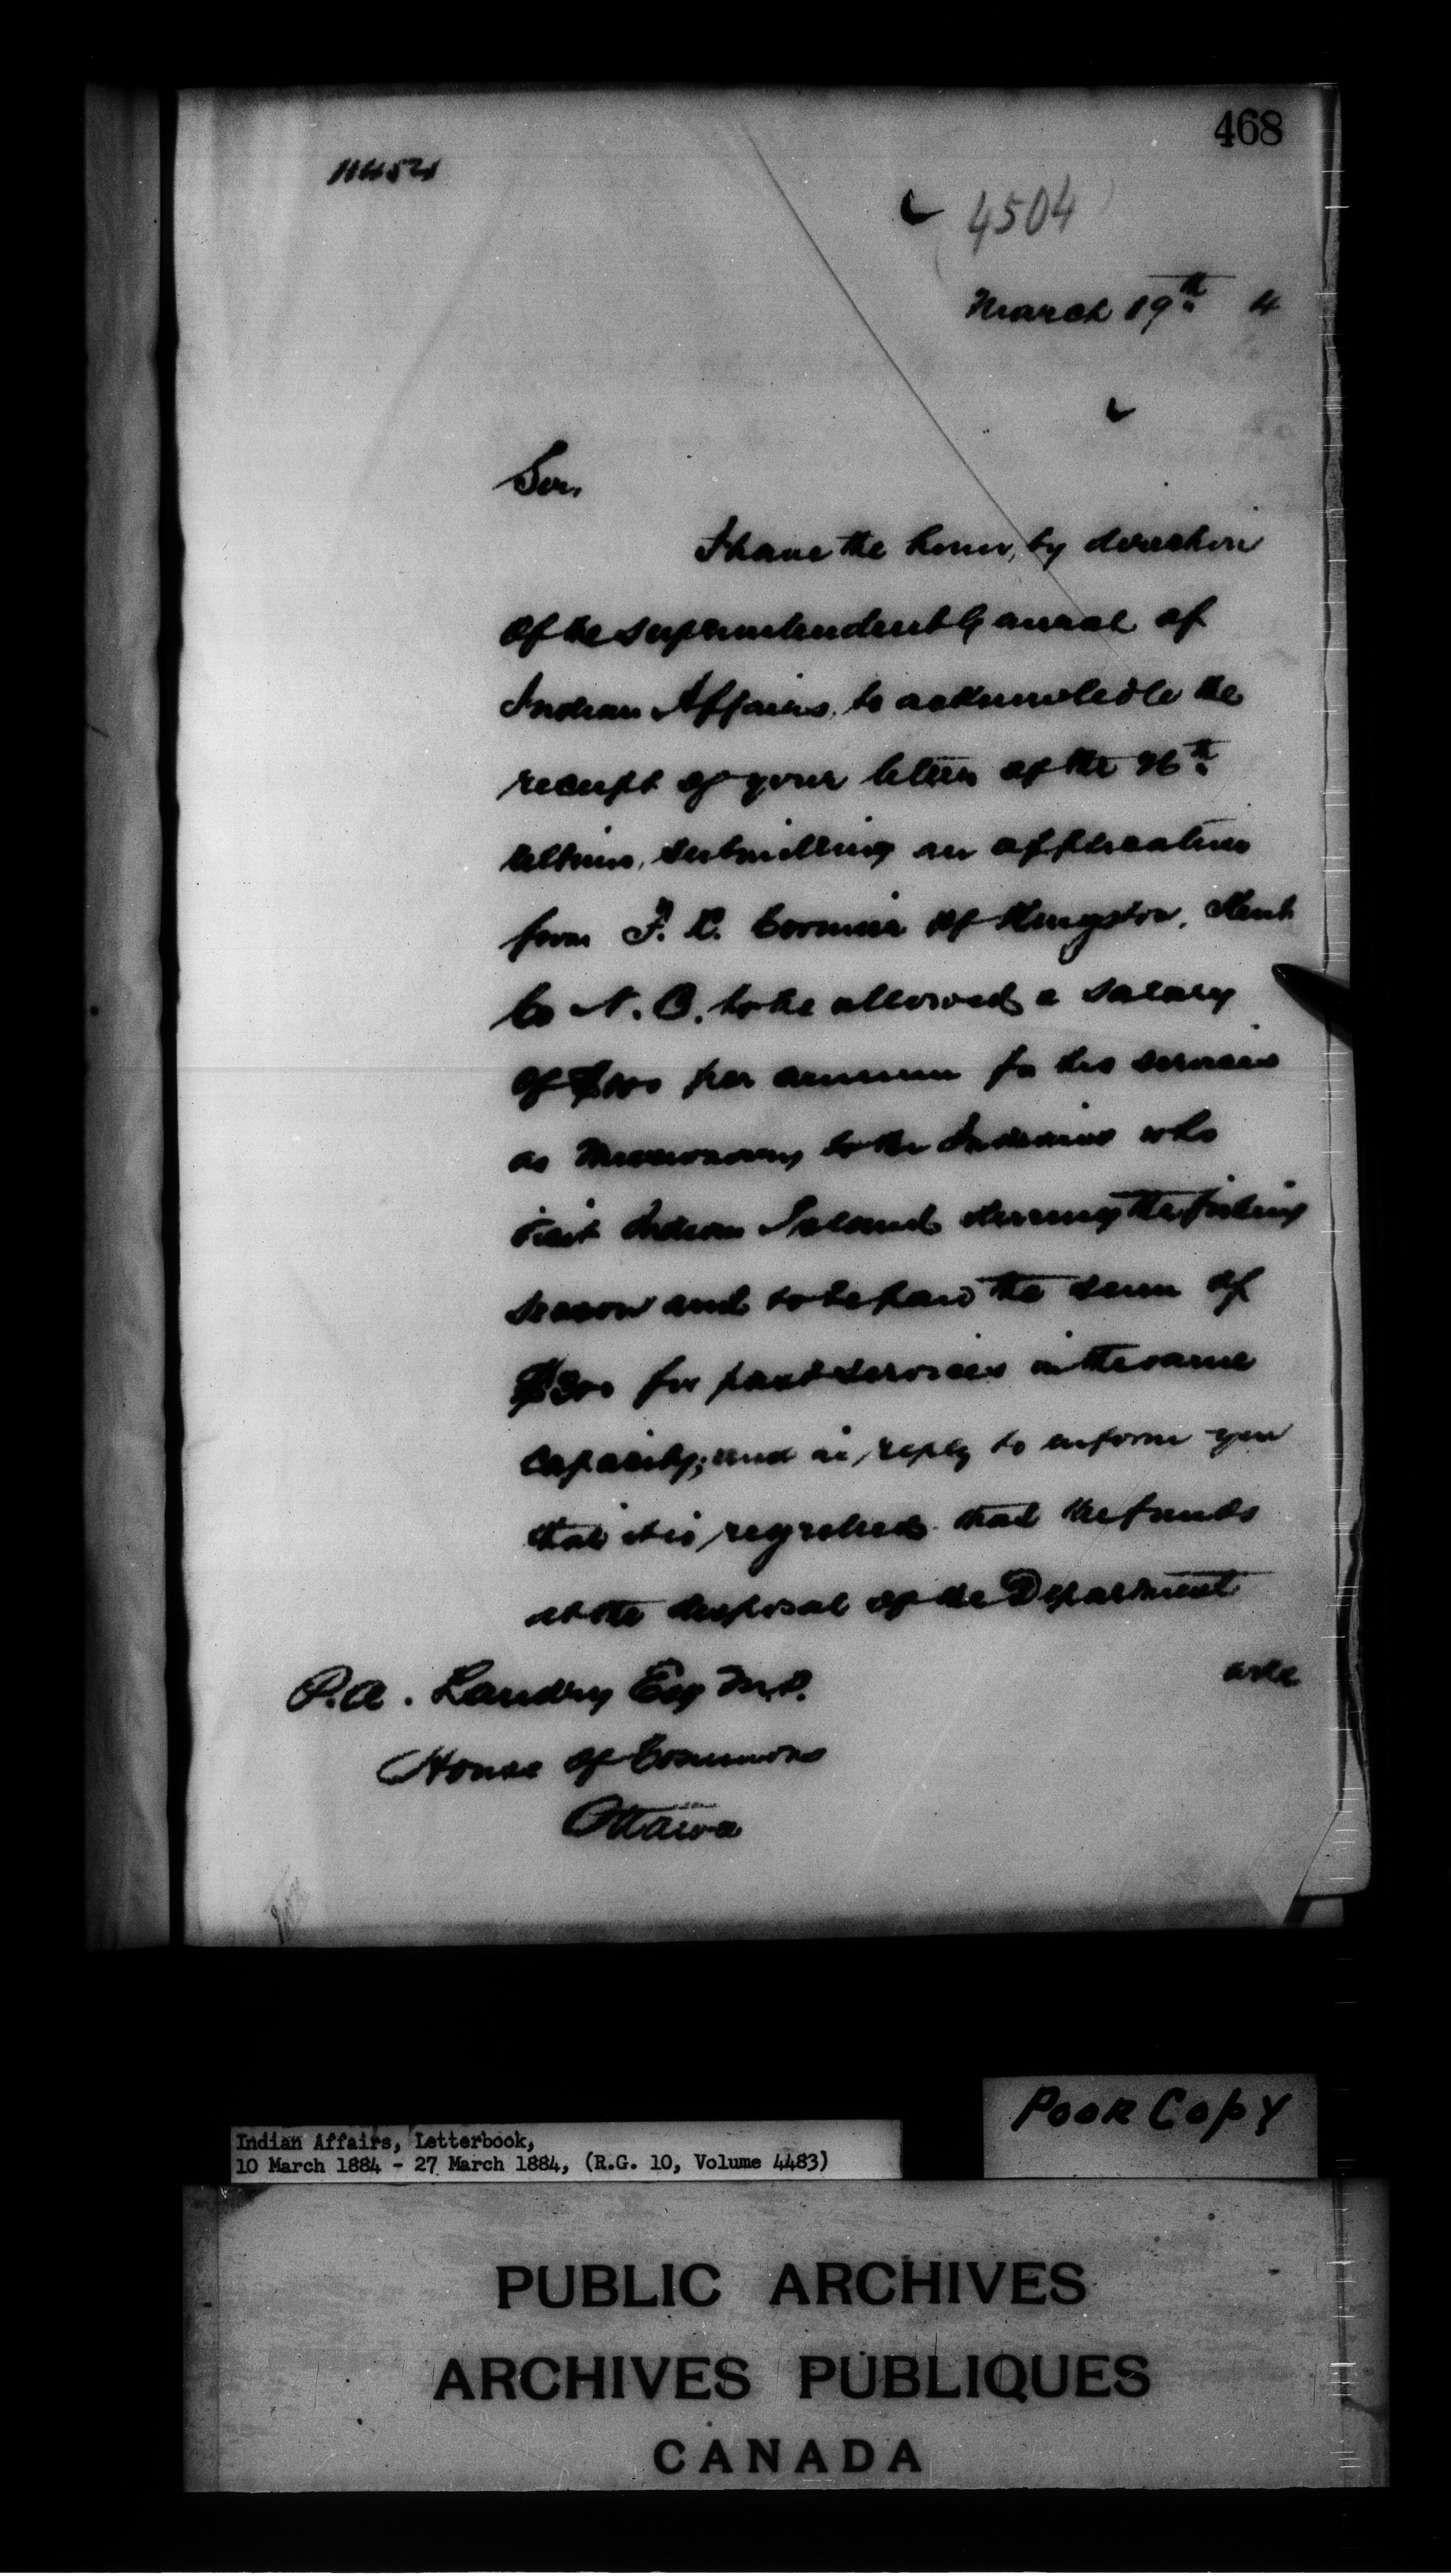 468
4504
March 19th 4
Sir,
I have the honor, by direction
of the Superintendent General of
Indian Affairs, to acknowledge the
receipt of your letter of the 26th
ultimo, submitting an application
from F. X. Cormier of Kingston, Kent
Co N. B. to be allowed a salary
of $100 per annum for his services
as Missionary to the Indians who
visit Indian Island during the fishing
season and to be paid the sum of
$300 for past services in the same
capacity; and in reply to inform you
that it is regretted that the funds
at the disposal of the Department
are
P. A. Landry Esq M.P.
House of Commons
Ottawa
Poor Copy
Indian Affairs, Letterbook,
10 March 1884 - 27 March 1884, (R.G. 10, Volume 4483)
PUBLIC ARCHIVES
ARCHIVES PUBLIQUES
CANADA